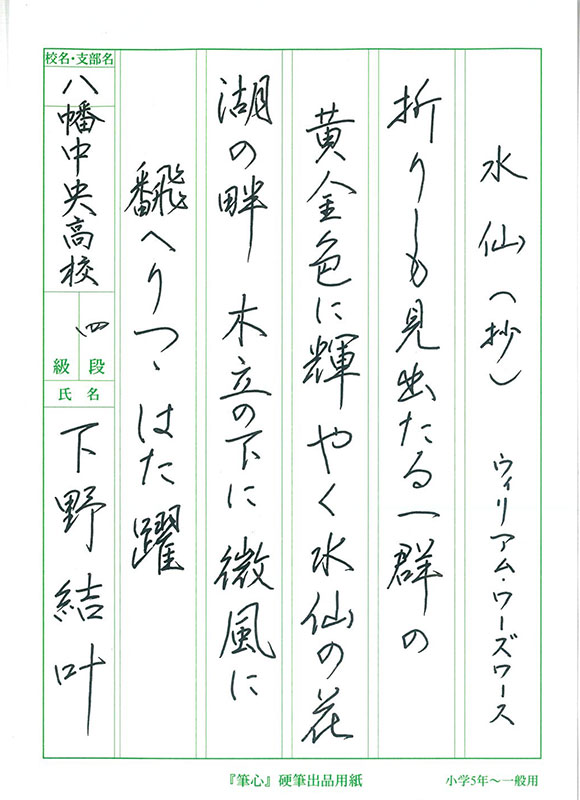 水仙（抄） ウィリアム・ワーズワース
折りしも見出たる一群の
黄金色に輝やく水仙の花
湖の畔 木立の下に微風に
翻へりつゝはた躍
校名・支部名
八幡中央高校
四
段級
氏名
下野結叶
『筆心』硬筆出品用紙
小学5年～一般用